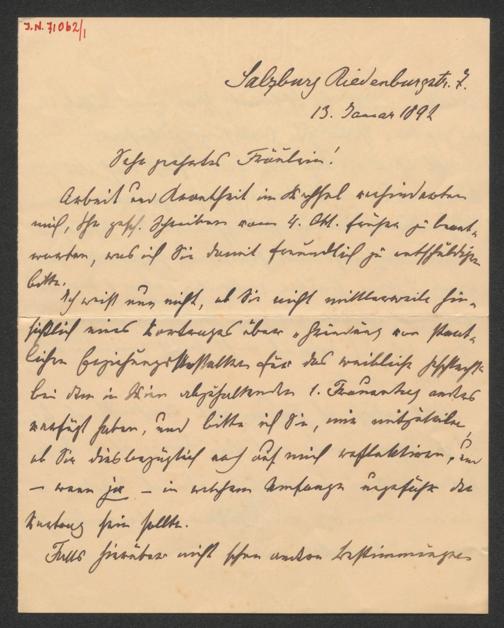 J.N. 71062/1
Salzburg Riedenburgstr. 7.
13. Januar 1892
Sehr geehrtes Fräulein!
Arbeit und Krankheit im Wechsel verhinderten
mich, Ihr gesch. Schreiben vom 4. Okt. früher zu beant-
worten, was ich Sie damit freundlich zu entschuldigen
bitte.
Ich weiß nun nicht, ob Sie nicht mittlerweile hin-
sichtlich eines Vortrages über „Gründung von staat-
lichen Erziehungsanstalten für das weibliche Geschlecht"
bei dem in Wien abzuhaltenden 1. Frauentag anders
verfügt haben, und bitte ich Sie, mir mitzuteilen,
ob Sie diesbezüglich noch auf mich reflektieren, und
– wenn ja – in welchem Umfange ungefähr der
Vortrag sein sollte.
Falls hierüber nicht schon andere Bestimmungen